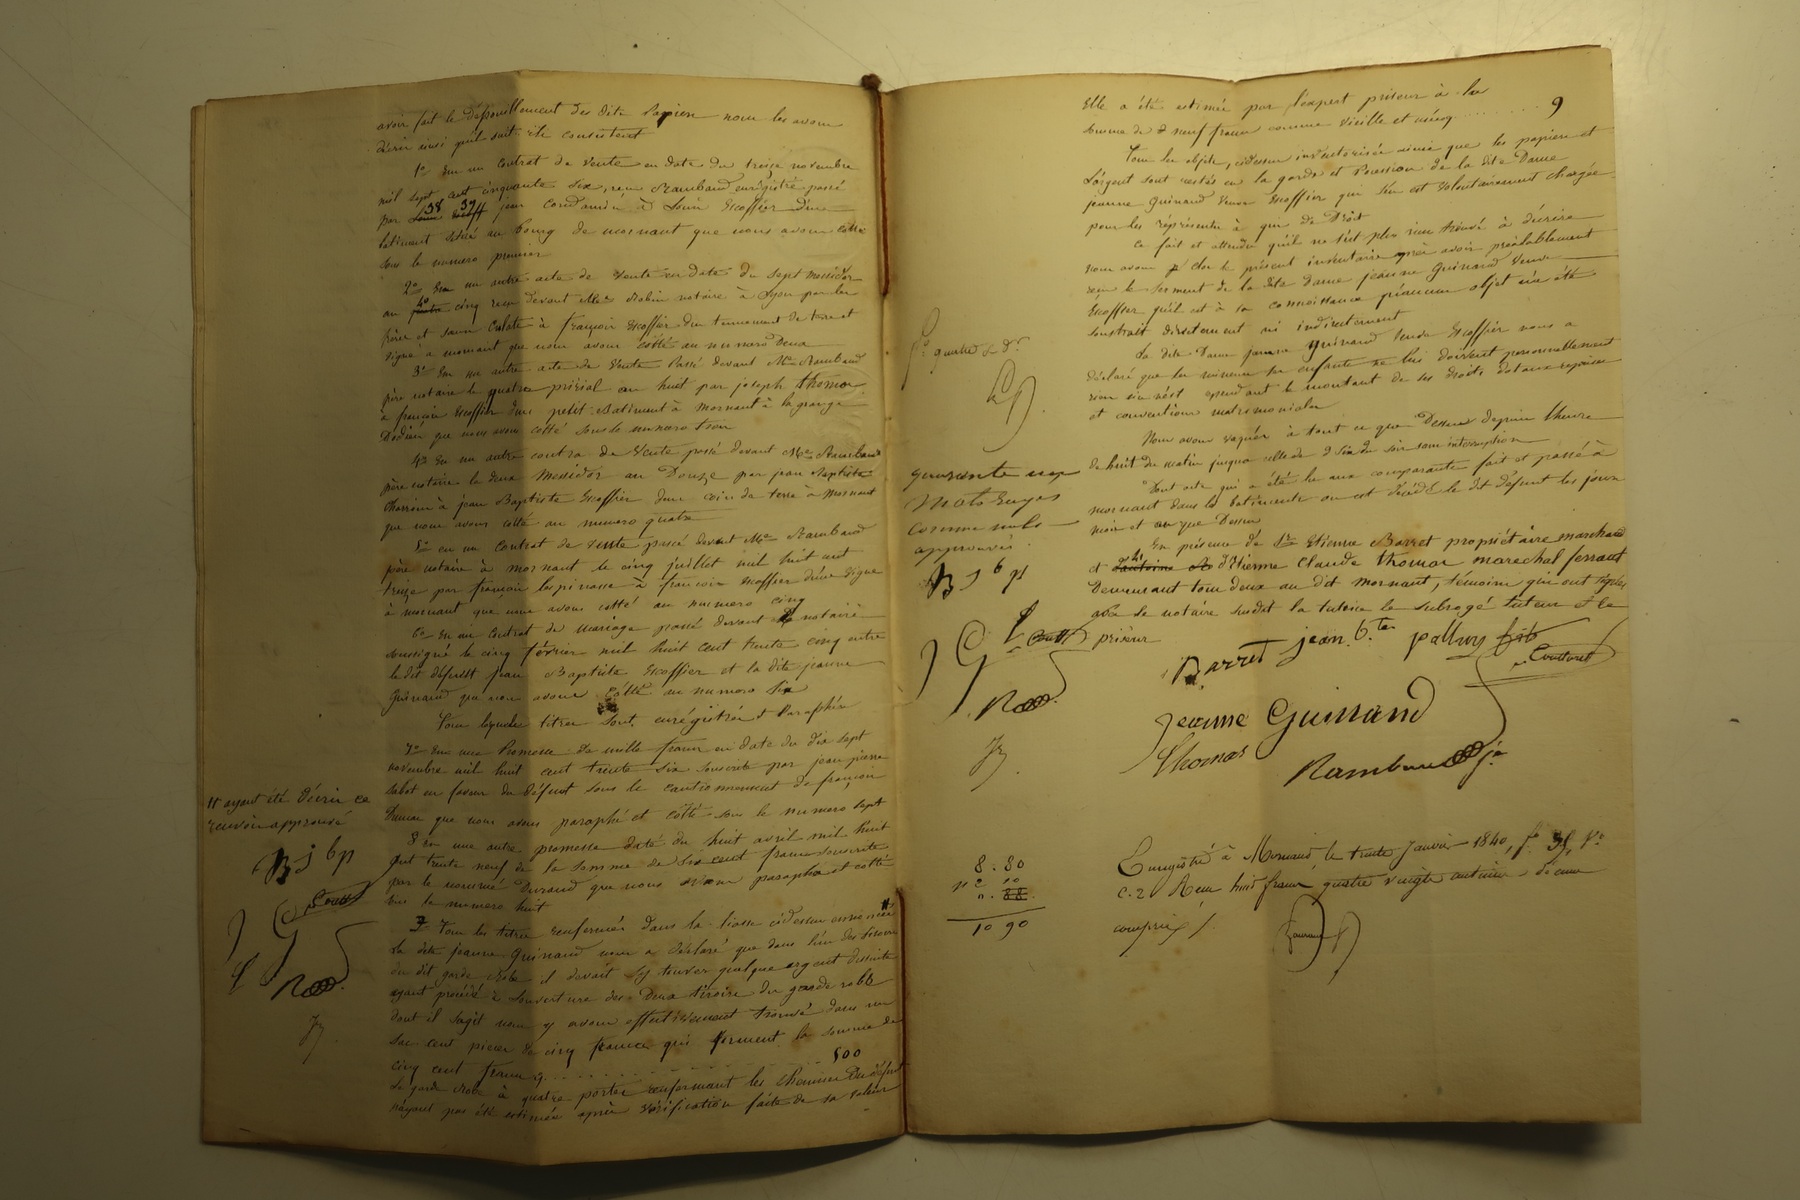 avoir fait le dépouillement des dits Papiers nous les avons
décrir ainsi quil suit: ils consistent
1o En un Contrat de Vente en date du treize novembre
mil sept cent cinquante six, reçu Rambaud enrégistré passé
par 38 39 jean Condamin à Louis Escoffier d'un
batiment situé au bourg de mornant que nous avons côtté
sous le numero premier
2o En un autre acte de Vente en date du sept Messidor
an cinq reçu devant Me Robin notaire à Lyon par les
frères et sœurs à françois Escoffier d'un tennement de terre et
vigne à mornant que nous avons côtté au numero Deux
3o En un autre acte de Vente Passé devant Me Rambaud
père notaire le quatre prérial an huit par joseph thomas
à françois Escoffier d'un petit Batiment à Mornant à la grange
Dodieu que nous avons cotté sous le numero trois
4o En un autre contra de Vente passé devant Me Rambaud
père notaire le deux Messidor an Douze par jean Baptiste
à jean Baptiste Escoffier d'un coin de terre à Mornant
que nous avons côtté au numero quatre
5o en un Contrat de vente passé devant Me Rambaud
père notaire à mornant le cinq juillet mil huit cent
treize par françois lespinasse à francois Escoffier d'une Vigne
à mornant que nous avons cotté au numero cinq
6o En un Contrat de mariage passé devant notaire
soussigné le cinq février mil huit cent trente cinq entre
le dit défunt jean Baptiste Escoffier et la dite jeanne
Guinand que nous avons côtté au numero six
Tous lesquels titres sont enrégistrés & Paraphés
7o En une Promesse de mille francs en date du dix sept
novembre mil huit cent trente six souscrite par jean pierre
en faveur du défunt sous le cautionnement de françois
que nous avons paraphé et côtté sous le numero sept
8 En une autre promesse daté du huit avril mil huit
cent trente neuf de la somme de six cent francs souscrite
par le nommé Durand que nous avons paraphé et cotté
sous le numero huit
Tous les titres renfermés dans la liasse cidessus
la dite jeanne Guinand nous a déclaré que dans l'un des tiroirs
du dit garde robe il devait s'y trouver quelque argent
ayant procédé à louverture des Deux tiroirs du garde robe
dont il sagit nous y avons effectivement trouvé dans un
sac cent pieces de cinq francs qui forment la somme de
cinq cent francs ........ 500
Le garde robe à quatre portes renfermant les chemises du défunt
nayant pas été estimée après vérification faite de sa valeur
11 ayant été Décrir ce
renvoi approuvé
B j bp
Elle a été estimée par l'expert priseur à la
somme de neuf francs comme vieille et ........ 9
Tous les objets, cidessus inventorisés ainsi que les papiers et
Largent sont restés en la garde et Possession de la dite Dame
jeanne Guinand Veuve Escoffier qui s'en est volontairement chargée
pour les réprésenter à qui de Droit
Ce fait et attendu qu'il ne s'est plus rien trouvé à décrire
nous avons clos le présent inventaire après avoir préalablement
reçu le serment de la dite Dame jeanne Guinand Veuve
Escoffier qu'il est à sa connaissance qu'aucun objet n'a été
soustrait directement ni indirectement
La dite Dame jeanne Guinand Veuve Escoffier nous a
déclaré que les mineurs ses enfants ne lui doivent personnellement
rien si n'est cependant le montant de ses droits dotaux reprises
et conventions matrimoniales
Nous avons vaqué à tout ce que Dessus depuis lheure
de huit du matin jusqua celle de six du soir sans interruption
Dont acte qui a été lu aux comparants fait et passé à
mornant dans les batiments ou est décédé le dit défunt les jours
mois et an que Dessus
En présence de Sr Etienne Barret propriétaire marchand
et d'Etienne Claude thomas marechal ferrant
Demeurant tous deux au dit Mornant, témoins qui ont signés
avec le notaire susdit la tutrice le subrogé tuteur et le
priseur
quarante
Mots rayés
comme nuls
approuvés
B j b p
Barret jean b.te pallury fils
Jeanne Guinand
Thomas
Rambaud je
8.80
10
10 90
Enregistré à Mornant, le trente Janvier 1840, fo 38, Vo
C. 2. Reçu huit francs quatre vingts centimes, dixieme
compris /.